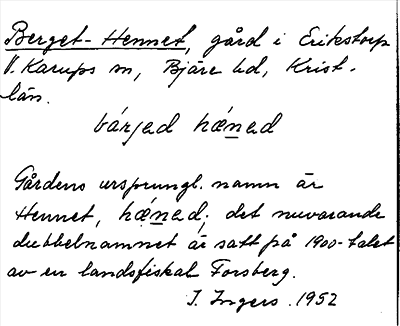 Berget-Hennet, gård i Erikstorp
V. Karups sn, Bjäre hd, Krist.
län.
bárjad hǽnad
Gårdens ursprungl. namn är
Hennet, hǽnad; det nuvarande
dubbelnamnet är satt på 1900-talet
av en landsfiskal Forsberg.
I. Ingers. 1952